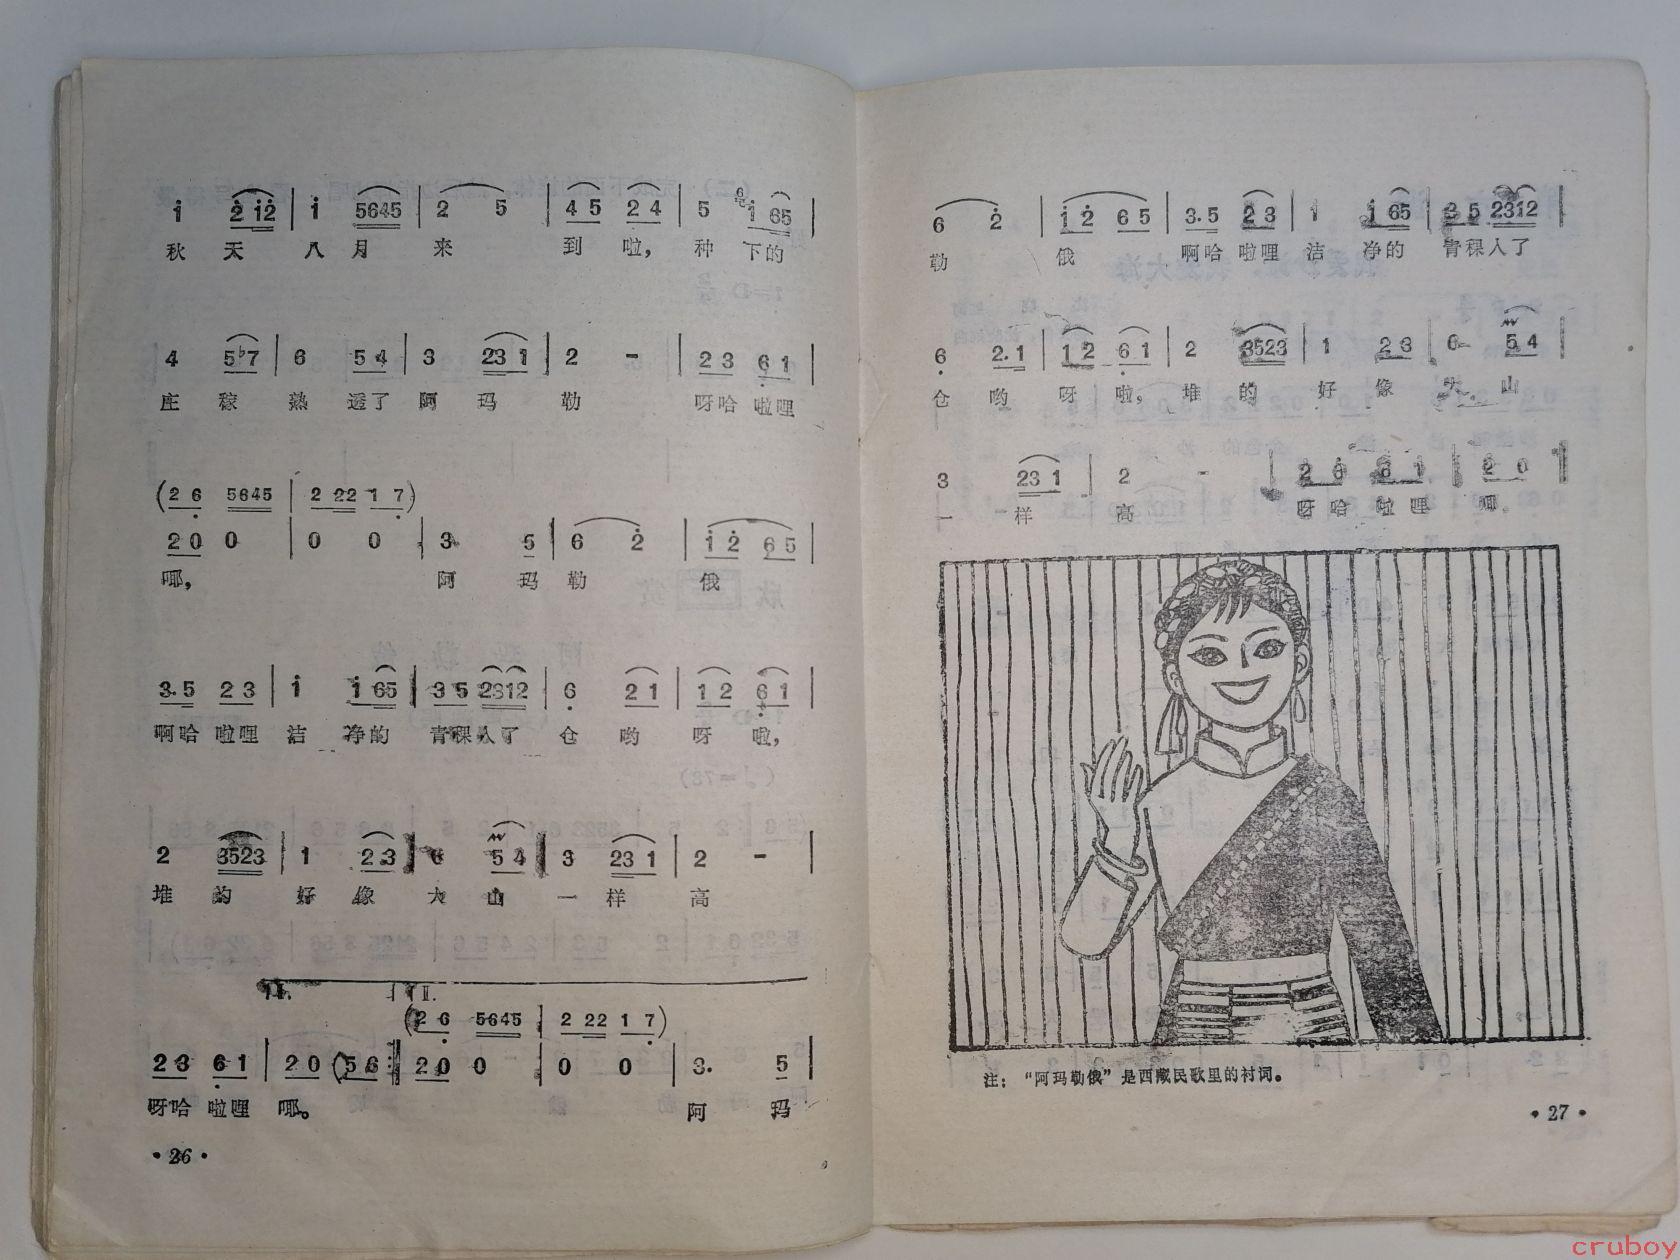 i 2 i2 | i 5645 | 2 5 | 4 5 2 4 | 5 i 65 |
秋 天 八 月 来 到 啦， 种 下的
4 5 ♭7 | 6 5 4 | 3 23 1 | 2 - | 2 3 6 1 |
庄 稼 熟 透了 阿 玛 勒 呀哈 啦哩
(2 6 5645 | 2 22 1 7)
2 0 0 | 0 0 | 3 5 | 6 2 | i 2 6 5 |
哪， 阿 玛 勒 俄
3. 5 2 3 | i i 65 | 3 5 2312 | 6 2 1 | 1 2 6 1 |
啊哈 啦哩 洁 净的 青稞入了 仓 哟 呀 啦，
2 3523 | 1 2 3 | 6 5 4 | 3 23 1 | 2 - |
堆 的 好 像 大 山 一 样 高
I. II.
(2 6 5645 | 2 22 1 7)
2 3 6 1 | 2 0 (5 6 :| 2 0 0 | 0 0 | 3. 5 |
呀哈 啦哩 哪。 阿 玛
• 26 •
6 2 | i 2 6 5 | 3. 5 2 3 | 1 i 65 | 3 5 2312 |
勒 俄 啊哈 啦哩 洁 净的 青稞入了
6 2. 1 | 1 2 6 1 | 2 3523 | 1 2 3 | 6 5 4 |
仓 哟 呀 啦， 堆 的 好 像 大 山
3 23 1 | 2 - | 2 6 6 1 | 2 0 ‖
一 样 高 呀哈 啦哩 哪。
注：“阿玛勒俄”是西藏民歌里的衬词。
• 27 •
cruboy